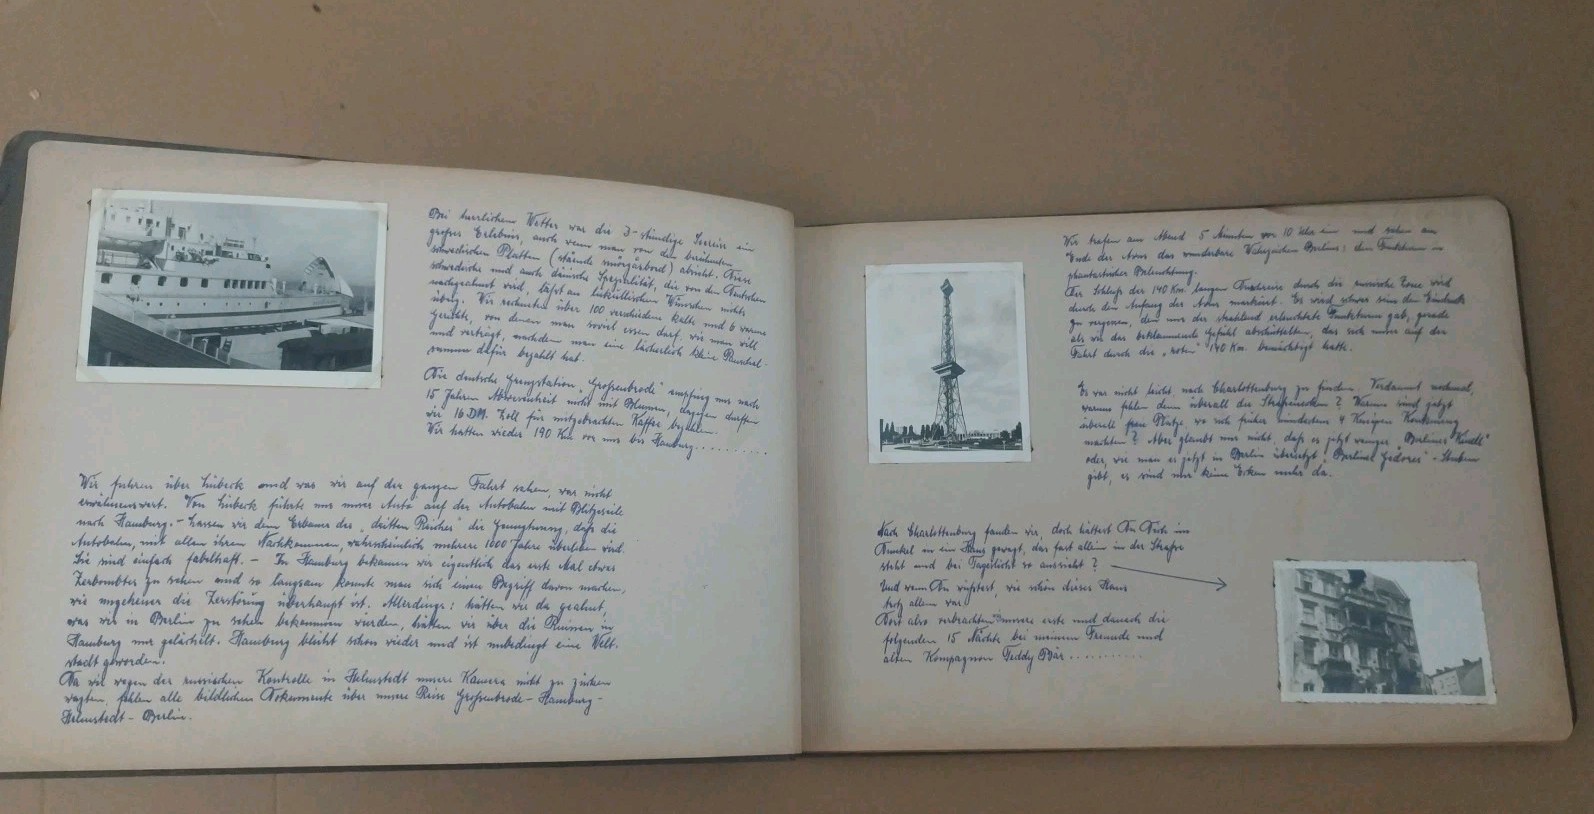 Bei herrlichem Wetter war die 3-stündige Seereise ein
großes Erlebnis, auch wenn man von den berühmten
schwedischen Platten (stående smörgåsbord) absieht. Diese
schwedische und auch dänische Spezialität, die von den Deutschen
nachgeahmt wird, läßt an lukullischen Wünschen nichts
übrig. Wir rechneten über 100 verschiedene kalte und 6 warme
Gerichte, von denen man soviel essen darf, wie man will
und verträgt, nachdem man eine lächerlich kleine Pauschal-
summe dafür bezahlt hat.
Die deutsche Grenzstation „Großenbrode" empfing uns nach
15 Jahren Abwesenheit nicht mit Blumen, dagegen durften
wir 16 DM. Zoll für mitgebrachten Kaffee bezahlen.
Wir hatten wieder 190 Km vor uns bis Hamburg..........
Wir fuhren über Lübeck und was wir auf der ganzen Fahrt sahen, war nicht
erwähnenswert. Von Lübeck führte uns unser Auto auf der Autobahn mit Blitzeseile
nach Hamburg. – Lassen wir dem Erbauer des „dritten Reiches" die Genugtuung, daß die
Autobahn, mit allen ihren Nachkommen, wahrscheinlich mehrere 1000 Jahre überleben wird.
Sie sind einfach fabelhaft. – In Hamburg bekamen wir eigentlich das erste Mal etwas
Zerbombtes zu sehen und so langsam konnte man sich einen Begriff davon machen,
wie ungeheuer die Zerstörung überhaupt ist. Allerdings: hätten wir da geahnt,
was wir in Berlin zu sehen bekommen würden, hätten wir über die Ruinen in
Hamburg nur gelächelt. Hamburg blüht schon wieder und ist unbedingt eine Welt-
stadt geworden.
Da wir wegen der russischen Kontrolle in Helmstedt unsere Kamera nicht zu zücken
wagten, fehlen alle bildlichen Dokumente über unsere Reise Großenbrode – Hamburg –
Helmstedt – Berlin.
Wir trafen am Abend 5 Minuten vor 10 Uhr ein und sahen am
Ende der Avus das wunderbare Wahrzeichen Berlins: den Funkturm in
phantastischer Beleuchtung.
Der Schluß der 140 Km. langen Durchreise durch die russische Zone wird
durch den Anfang der Avus markiert. Es wird schwer sein den Eindruck
zu vergessen, den uns der strahlend erleuchtete Funkturm gab, gerade
als wir das beklemmende Gefühl abschüttelten, das sich unser auf der
Fahrt durch die „roten" 140 Km. bemächtigt hatte.
Es war nicht leicht nach Charlottenburg zu finden. Verdammt nochmal,
warum fehlen denn überall die Straßenecken? Warum sind jetzt
überall freie Plätze, wo sich früher mindestens 4 Kneipen Konkurrenz
machten? Aber glaubt nur nicht, daß es jetzt weniger „Berliner Kindl"
oder, wie man es jetzt in Berlin übersetzt „Berliner Gedores" - Stuben
gibt, es sind nur keine Ecken mehr da.
Nach Charlottenburg fanden wir, doch hättest Du Dich im
Dunkel an ein Haus gewagt, das fast allein in der Straße
steht und bei Tageslicht so aussieht?
Und wenn Du wüßtest, wie schön dieses Haus
trotz allem war!
Dort also verbrachten wir unsere erste und danach die
folgenden 15 Nächte bei meinem Freunde und
alten Kompagnon Teddy Bär..........